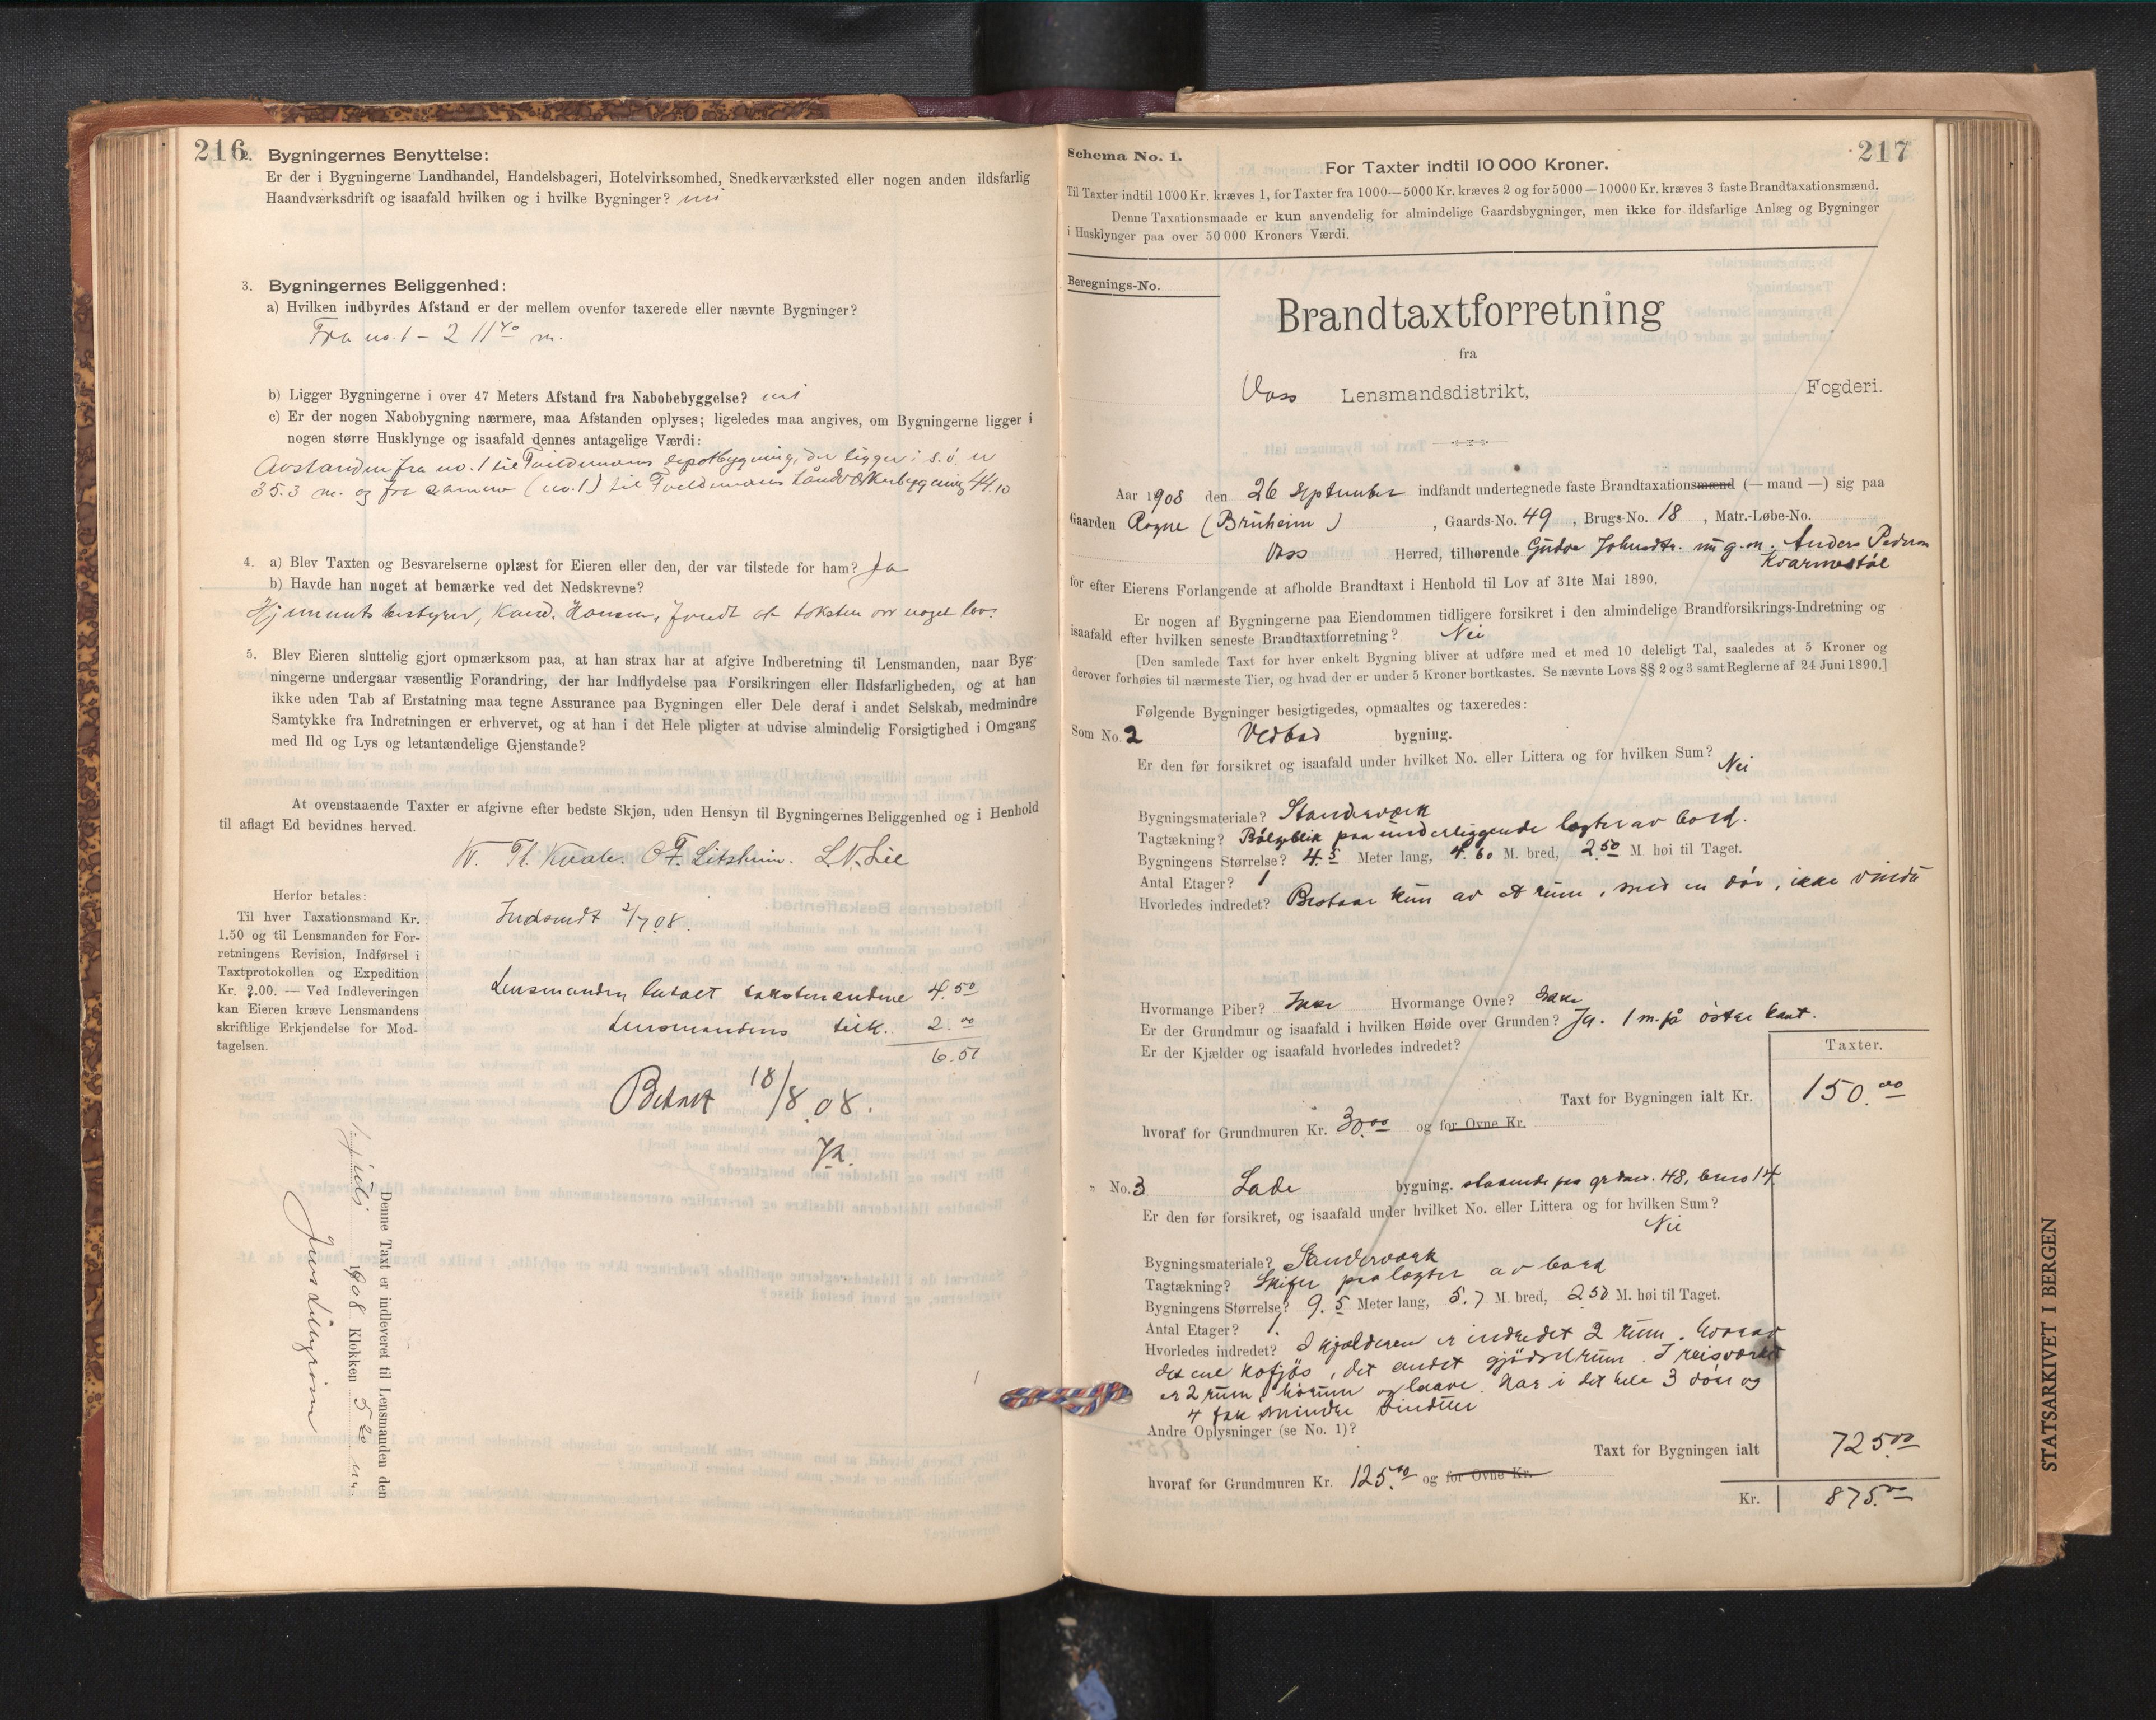 216
2. Bygningernes Benyttelse:
Er der i Bygningerne Landhandel, Handelsbageri, Hotelvirksomhed, Snedkerværksted eller nogen anden ildsfarlig
Haandværksdrift og isaafald hvilken og i hvilke Bygninger? nei
3. Bygningernes Beliggenhed:
a) Hvilken indbyrdes Afstand er der mellem ovenfor taxerede eller nævnte Bygninger?
Fra no. 1 - 2 11 40 m.
b) Ligger Bygningerne i over 47 Meters Afstand fra Nabobebyggelse? nei
c) Er der nogen Nabobygning nærmere, maa Afstanden oplyses; ligeledes maa angives, om Bygningerne ligger i
nogen større Husklynge og isaafald dennes antagelige Værdi:
Avstanden fra no. 1 til depotbygning, der ligger i s.ø. er
35.3 m. og fra samme (no. 1) til 44.10
4. a) Blev Taxten og Besvarelserne oplæst for Eieren eller den, der var tilstede for ham? Ja
b) Havde han noget at bemærke ved det Nedskrevne?
Hjemmets bestyrer, Kand. Hansen, fandt at taksten var noget lav.
5. Blev Eieren sluttelig gjort opmærksom paa, at han strax har at afgive Indberetning til Lensmanden, naar Byg-
ningerne undergaar væsentlig Forandring, der har Indflydelse paa Forsikringen eller Ildsfarligheden, og at han
ikke uden Tab af Erstatning maa tegne Assurance paa Bygningen eller Dele deraf i andet Selskab, medmindre
Samtykke fra Indretningen er erhvervet, og at han i det Hele pligter at udvise almindelig Forsigtighed i Omgang
med Ild og Lys og letantændelige Gjenstande?
At ovenstaaende Taxter er afgivne efter bedste Skjøn, uden Hensyn til Bygningernes Beliggenhed og i Henhold
til aflagt Ed bevidnes herved.
W. Th. Kvale. O. F. Litsheim. L. N. Lie
Herfor betales:
Til hver Taxationsmand Kr.
1.50 og til Lensmanden for For-
retningens Revision, Indførsel i
Taxtprotokollen og Expedition
Kr. 2.00. — Ved Indleveringen
kan Eieren kræve Lensmandens
skriftlige Erkjendelse for Mod-
tagelsen.
Indsendt 2/7 08.
Lensmanden betalt takstmændene 4.50
Lensmandens tilk. 2.00
6.50
Betalt 18/8 08.
Denne Taxt er indleveret til Lensmanden den
1 juli 1908 Klokken 5 20
217
Schema No. 1.
For Taxter indtil 10 000 Kroner.
Til Taxter indtil 1000 Kr. kræves 1, for Taxter fra 1000—5000 Kr. kræves 2 og for 5000—10000 Kr. kræves 3 faste Brandtaxationsmænd.
Denne Taxationsmaade er kun anvendelig for almindelige Gaardsbygninger, men ikke for ildsfarlige Anlæg og Bygninger
i Husklynger paa over 50 000 Kroners Værdi.
Beregnings-No.
Brandtaxtforretning
fra
Voss Lensmandsdistrikt, Fogderi.
Aar 1908 den 26 September indfandt undertegnede faste Brandtaxationsmænd (— mand —) sig paa
Gaarden Rogne (Bruheim), Gaards-No. 49, Brugs-No. 18, Matr.-Løbe-No.
Voss Herred, tilhørende Gudve Johnsdtr. nu g. m. Anders Pederson
Kvarmestøl
for efter Eierens Forlangende at afholde Brandtaxt i Henhold til Lov af 31te Mai 1890.
Er nogen af Bygningerne paa Eiendommen tidligere forsikret i den almindelige Brandforsikrings-Indretning og
isaafald efter hvilken seneste Brandtaxtforretning? Nei
[Den samlede Taxt for hver enkelt Bygning bliver at udføre med et med 10 deleligt Tal, saaledes at 5 Kroner og
derover forhøies til nærmeste Tier, og hvad der er under 5 Kroner bortkastes. Se nævnte Lovs §§ 2 og 3 samt Reglerne af 24 Juni 1890.]
Følgende Bygninger besigtigedes, opmaaltes og taxeredes:
Som No. 2 Vedbod bygning.
Er den før forsikret og isaafald under hvilket No. eller Littera og for hvilken Sum? Nei
Bygningsmateriale? Standerværk
Tagtækning? Bølgeblik paa underliggende lægter av bord.
Bygningens Størrelse? 4.5 Meter lang, 4.60 M. bred, 2.50 M. høi til Taget.
Antal Etager? 1
Hvorledes indredet? Bestaar kun av et rum, med en dør, ikke vindu
Hvormange Piber? Ikke Hvormange Ovne? Ikke
Er der Grundmur og isaafald i hvilken Høide over Grunden? Ja. 1 m. på østre kant.
Er der Kjælder og isaafald hvorledes indredet?
Taxter.
Taxt for Bygningen ialt Kr. 150.00
hvoraf for Grundmuren Kr. 30.00 og for Ovne Kr.
" No. 3 Lade bygning. staaende paa grdno. 48, brno 14.
Er den før forsikret, og isaafald under hvilket No. eller Littera og for hvilken Sum?
Nei
Bygningsmateriale? Standerværk
Tagtækning? Skifer paa lægter av bord
Bygningens Størrelse? 9.5 Meter lang, 5.7 M. bred, 2.50 M. høi til Taget.
Antal Etager? 1.
Hvorledes indredet? I kjælderen er indredet 2 rum. hvorav
det ene kofjøs, det andet gjødselrum. I reisværket
er 2 rum, hørum og laave. Har i det hele 3 døre og
4 fag mindre vinduer
Andre Oplysninger (se No. 1)?
Taxt for Bygningen ialt 725.00
hvoraf for Grundmuren Kr. 125.00 og for Ovne Kr.
Kr. 875.00
STATSARKIVET I BERGEN